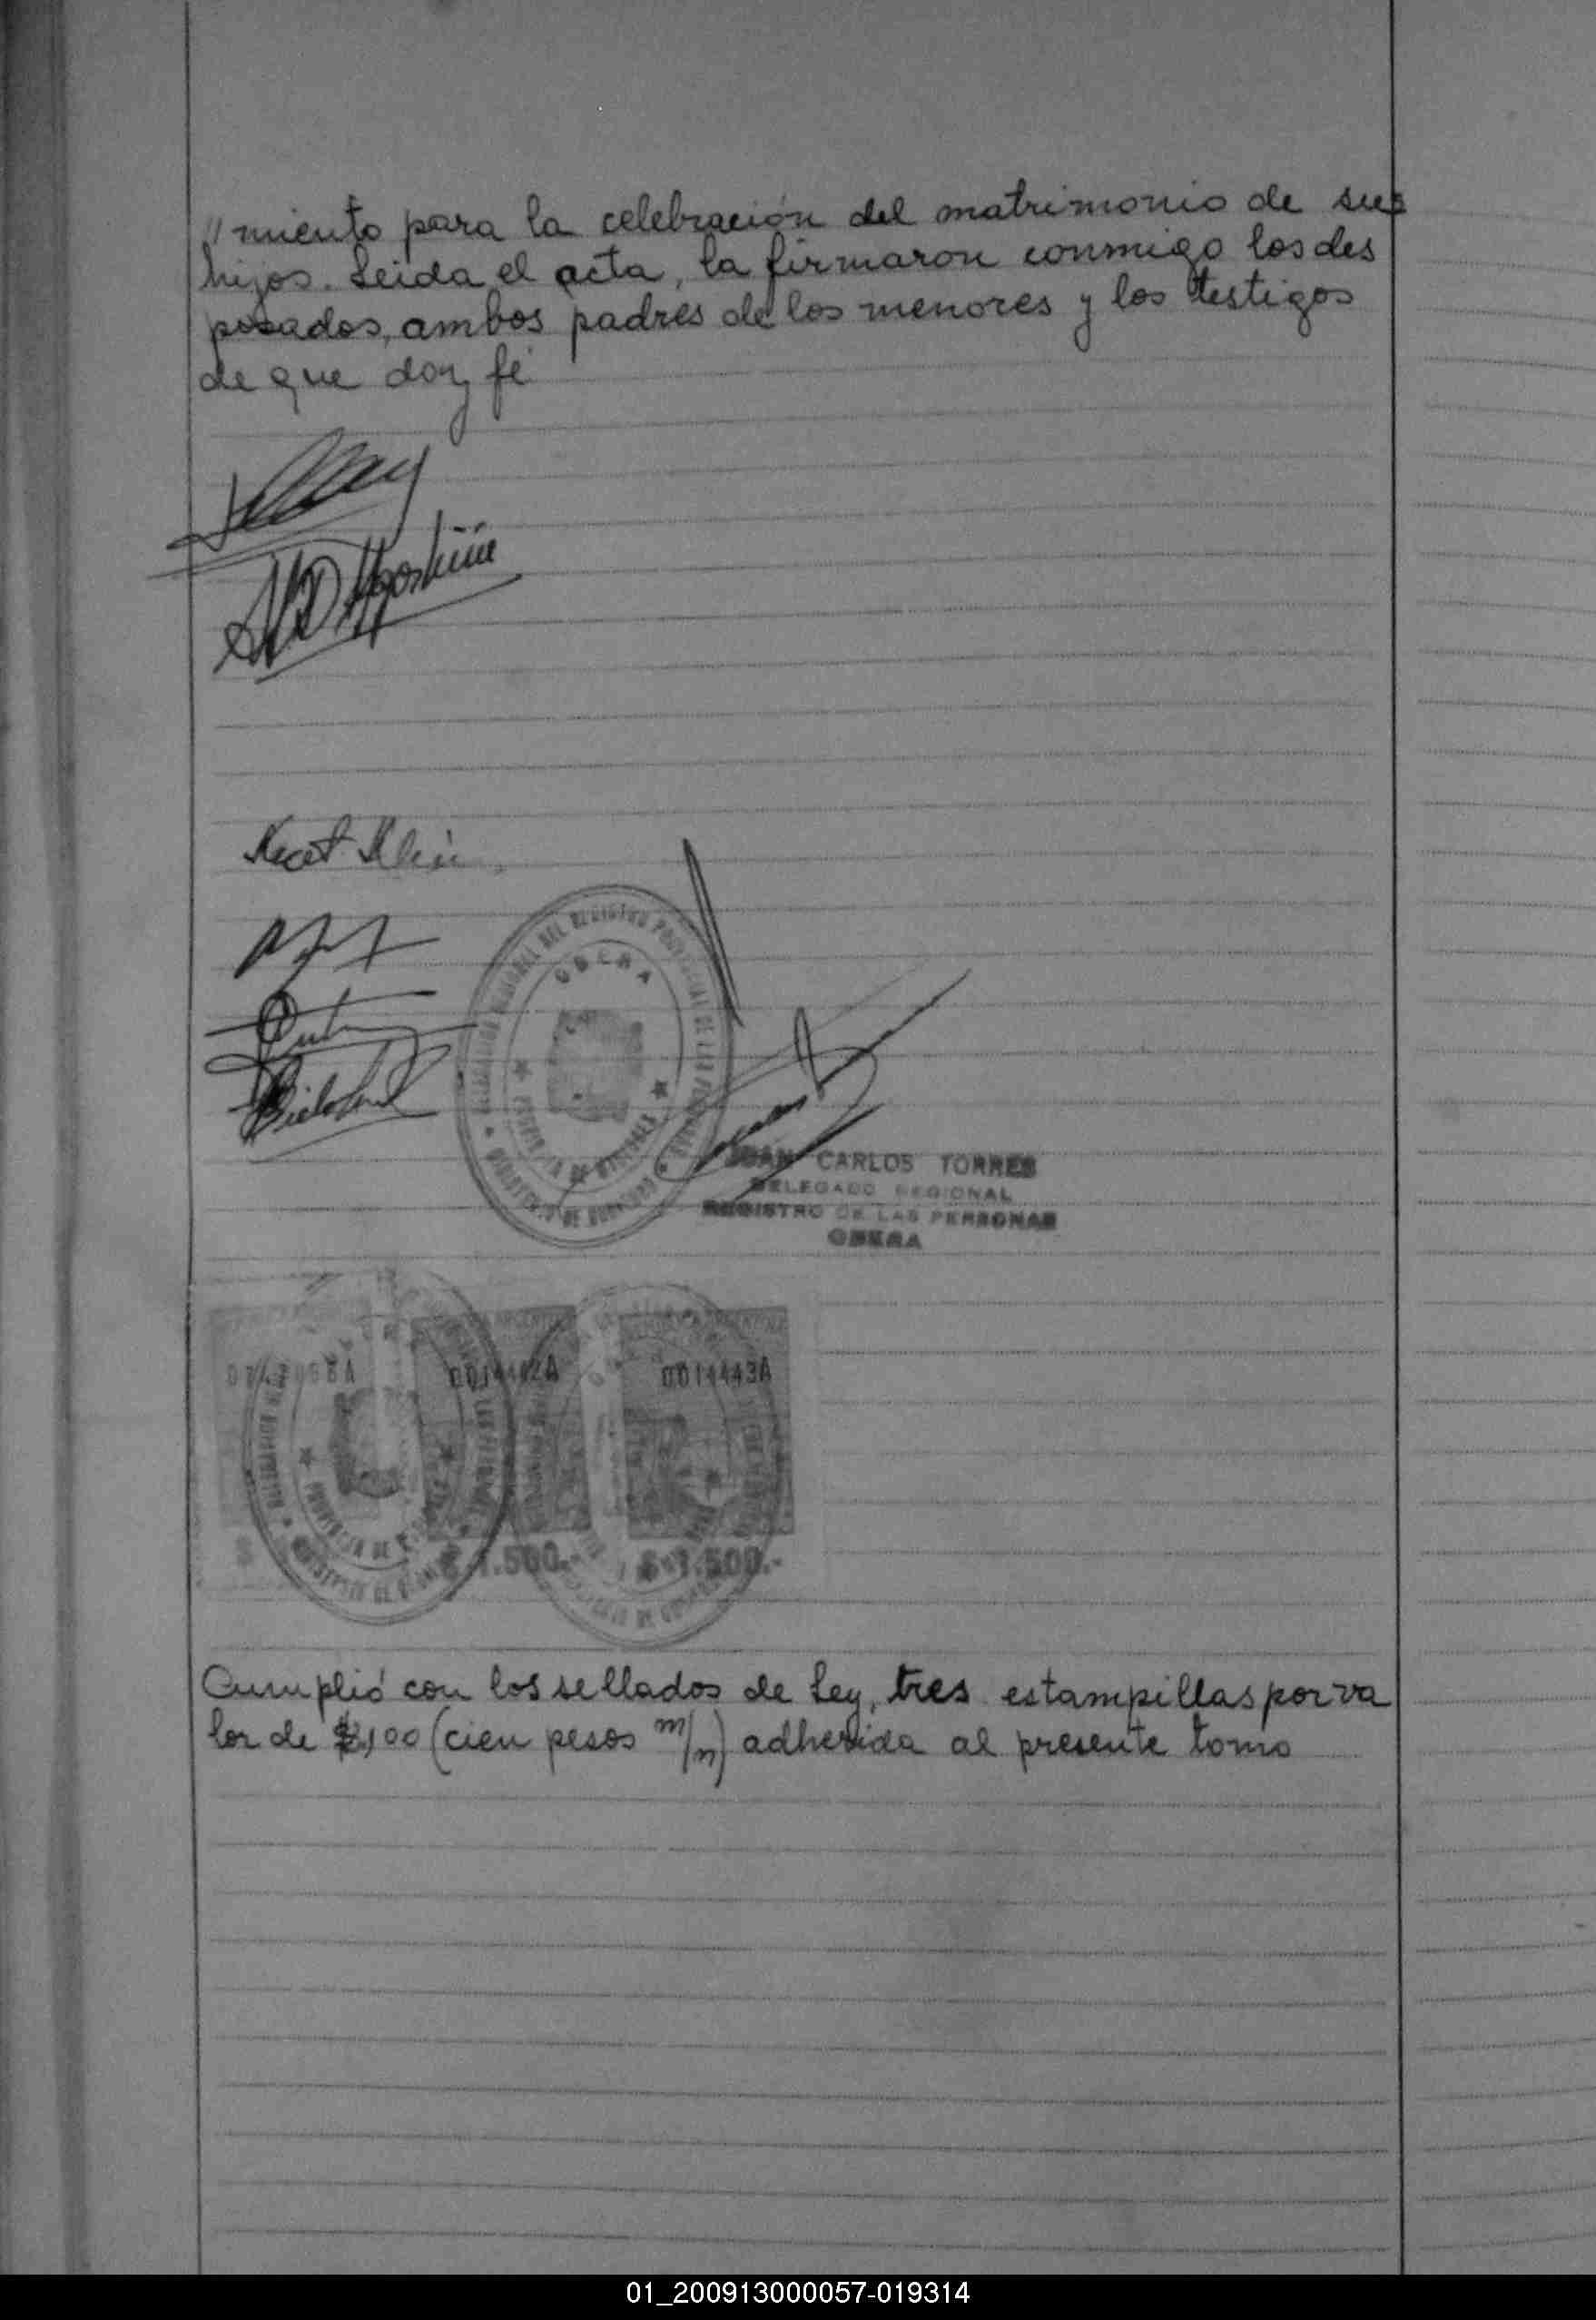 "miento para la celebración del matrimonio de sus
hijos. Leida el acta, la firmaron conmigo los des
posados, ambos padres de los menores y los testigos
de que doy fé
OBERA
PROVINCIA DE MISIONES
JUAN CARLOS TORRES
DELEGADO REGIONAL
REGISTRO DE LAS PERSONAS
OBERA
0014442A 0014443A
$ 1.500.- $ 1.500.-
Cumplió con los sellados de Ley, tres estampillas por va
lor de $ 100 (cien pesos m/n) adherida al presente tomo
01_200913000057-019314